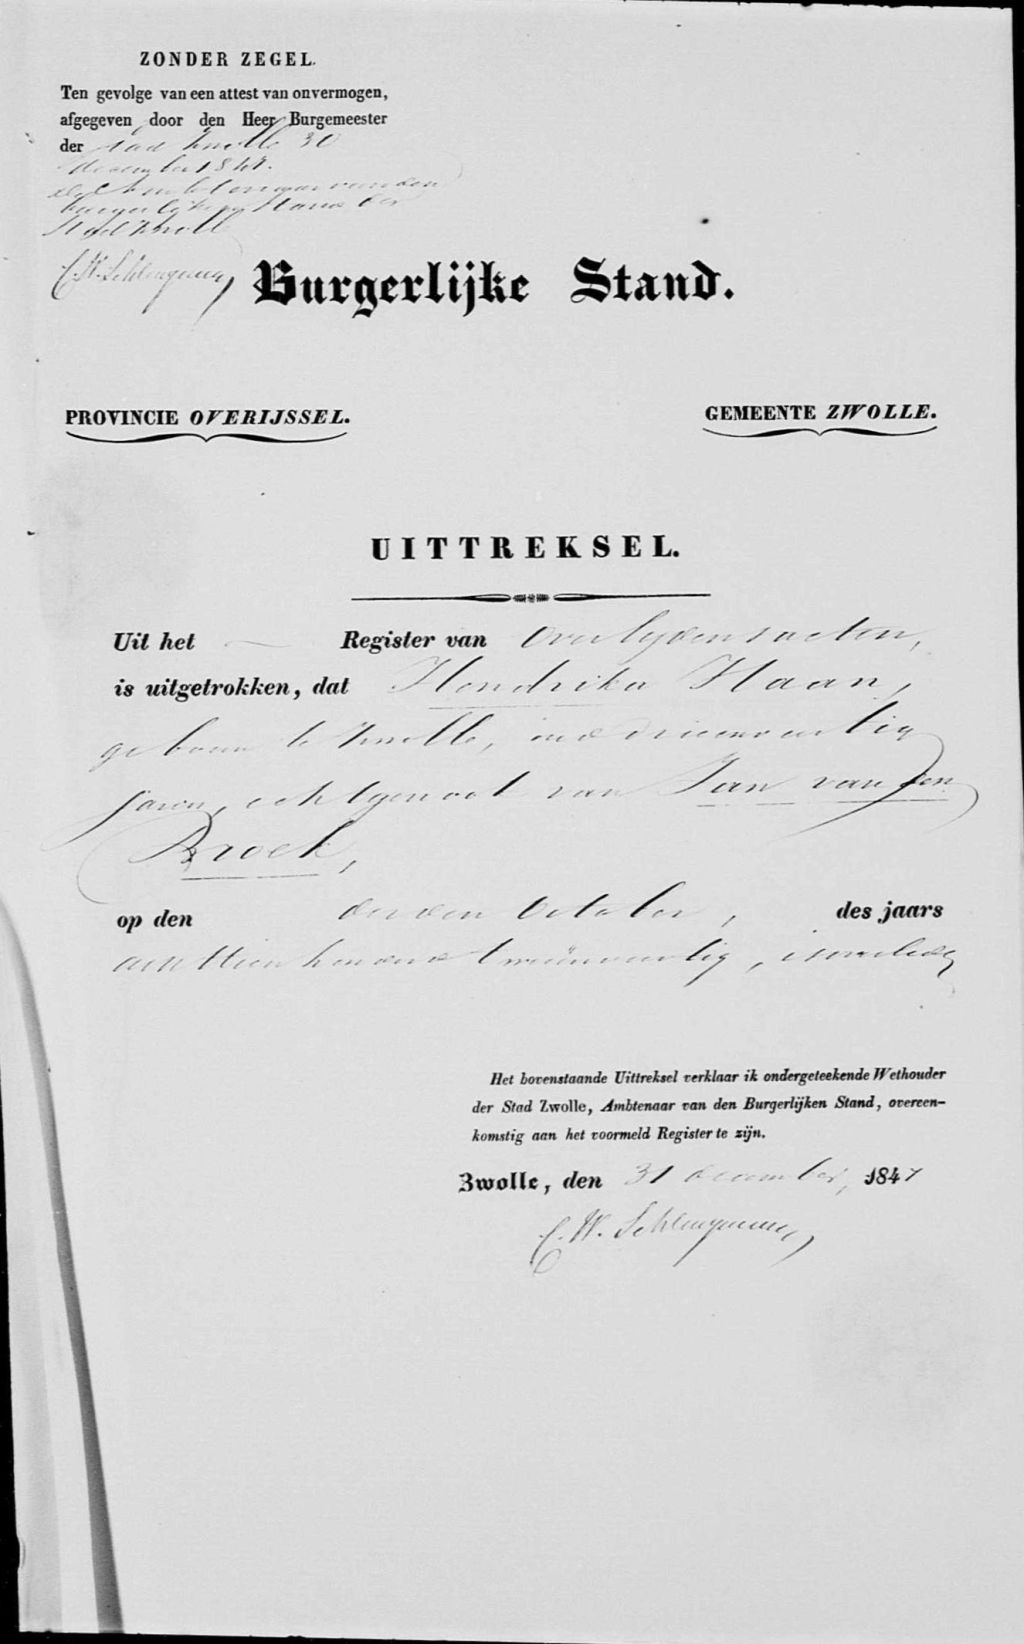 ZONDER ZEGEL.
Ten gevolge van een attest van onvermogen,
afgegeven door den Heer Burgemeester
der stad Zwolle 30
december 1847.
De Ambtenaar van den
burgerlijken Stand der
Stad Zwolle
C. W. Schlingemann
Burgerlijke Stand.
PROVINCIE OVERIJSSEL.
GEMEENTE ZWOLLE.
UITTREKSEL.
Uit het — Register van Overlijdens acten,
is uitgetrokken, dat Hendrika Haan,
geboren te Zwolle, oud drieenveertig
jaren, echtgenoot van Jan van den
Broek,
op den derden October, des jaars
achttienhonderd tweeënveertig, is overleden
Het bovenstaande Uittreksel verklaar ik ondergeteekende Wethouder
der Stad Zwolle, Ambtenaar van den Burgerlijken Stand, overeen-
komstig aan het voormeld Register te zijn.
Zwolle, den 31 december, 1847
C. W. Schlingemann